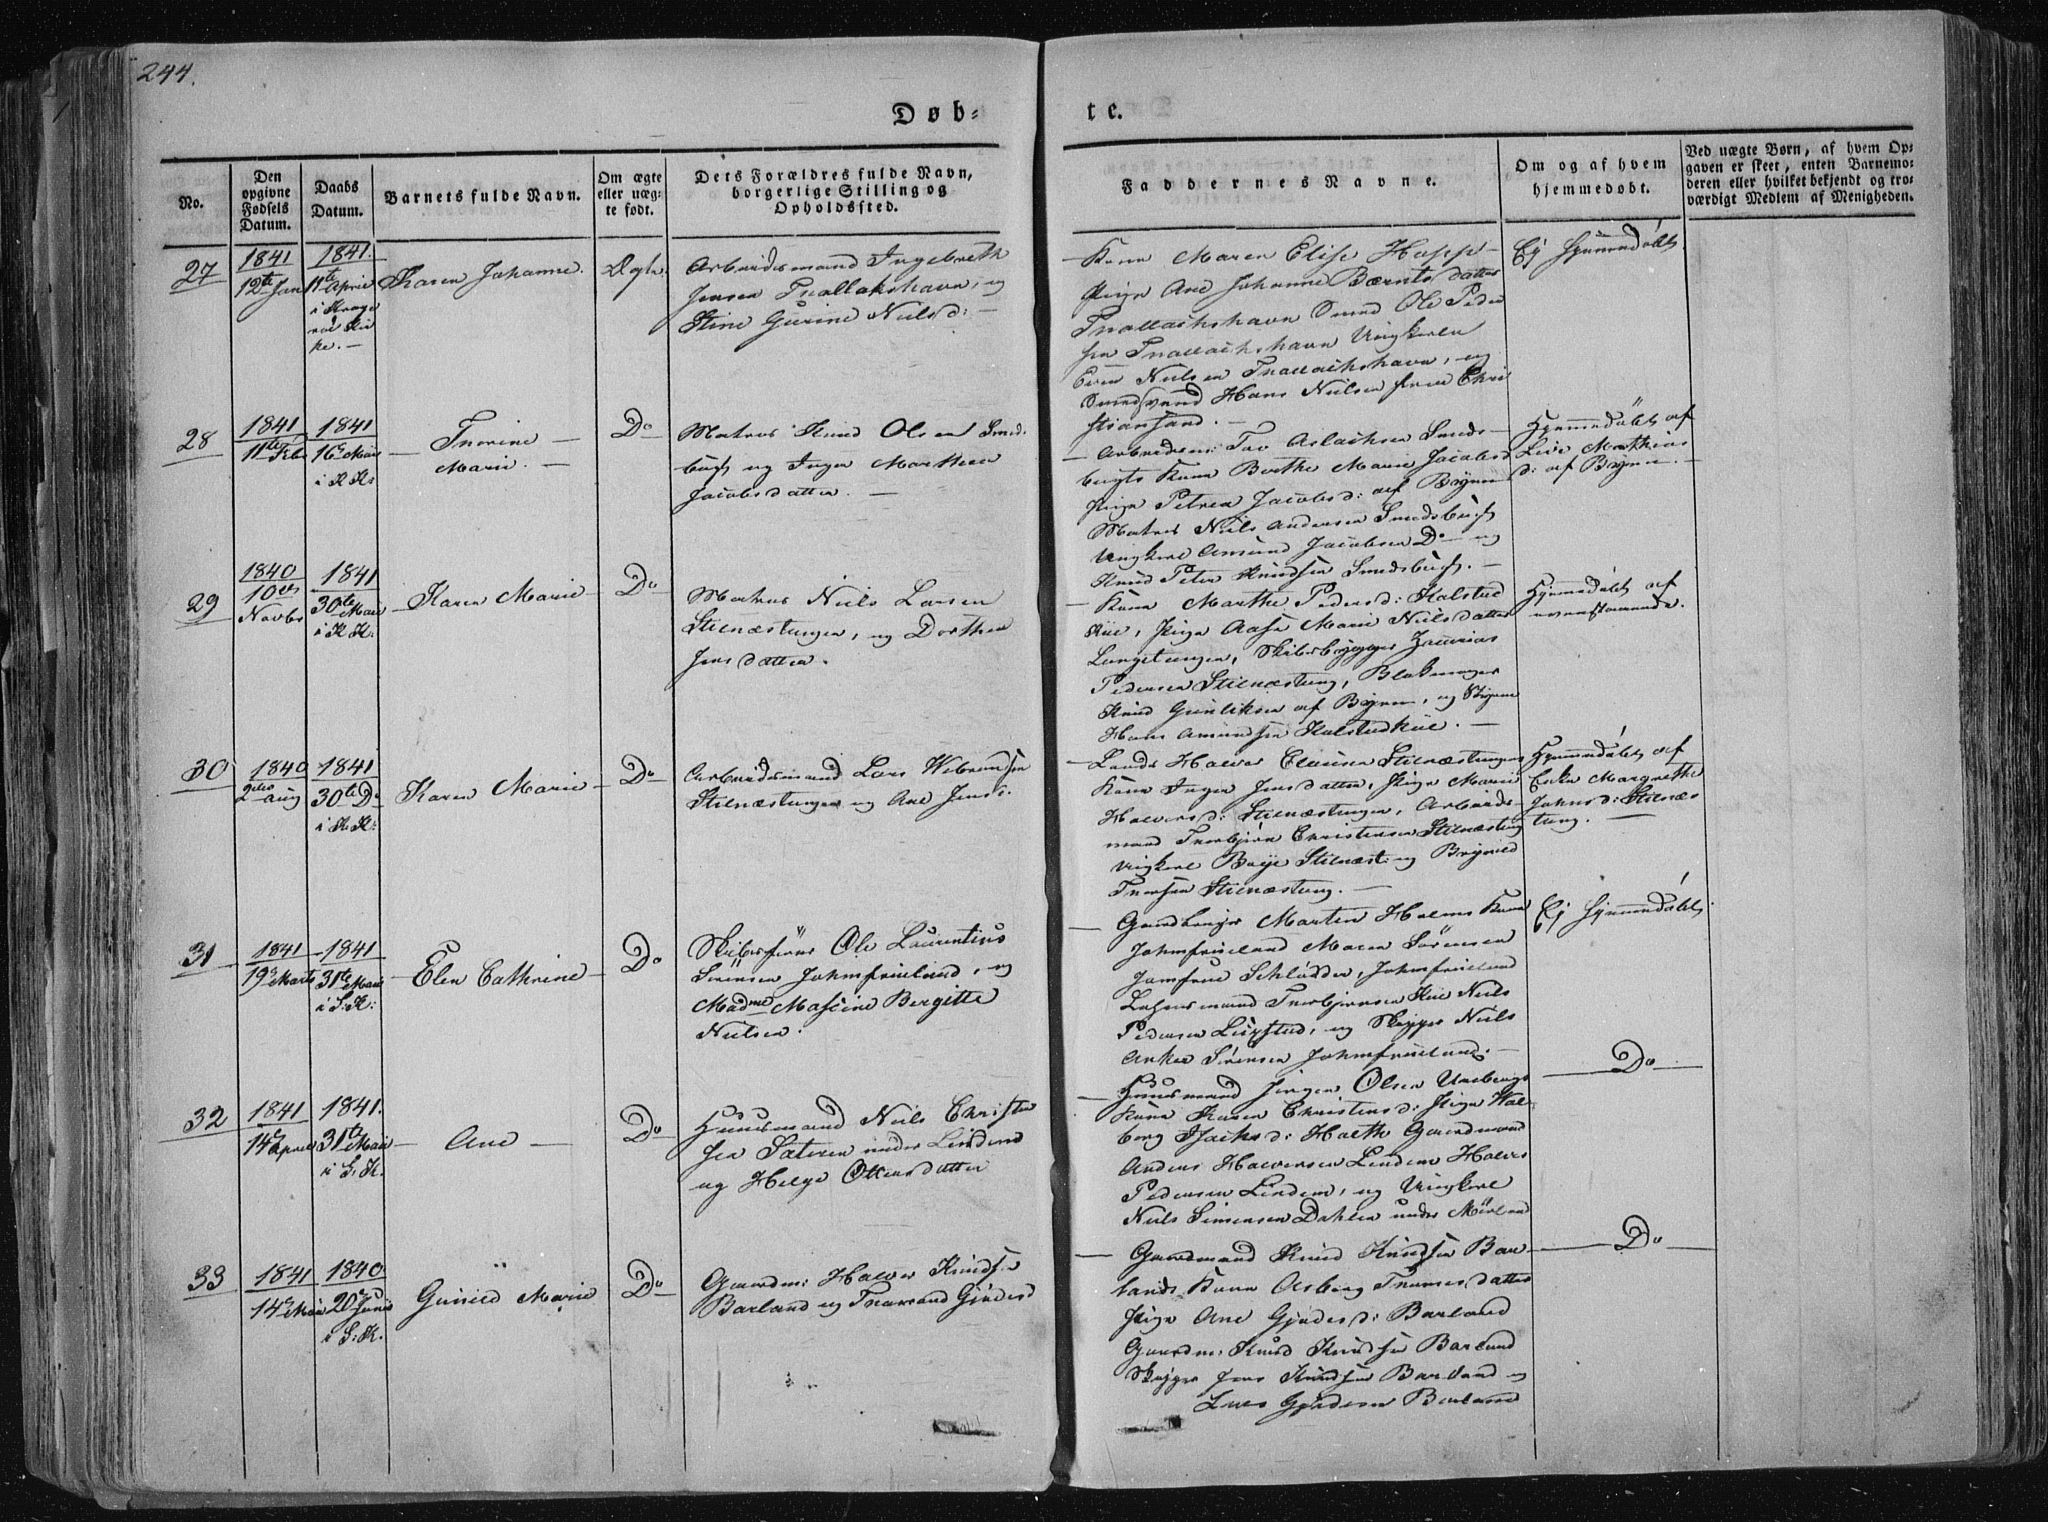 244.
Døb-
te.
No.
Den opgivne Fødsels Datum.
Daabs Datum.
Barnets fulde Navn.
Om ægte eller uægte født.
Dets Forældres fulde Navn, borgerlige Stilling og Opholdssted.
Faddernes Navne.
Om og af hvem hjemmedøbt.
Ved uægte Børn, af hvem Opgaven er skeet, enten Barnemoderen eller hvilket bekjendt og troværdigt Medlem af Menigheden.
27
1841
12te Jan
1841.
11te April
i Krage
röe Kir
ke. —
Karen Johanne.
Ægte
Arbeidsmand Ingebreth
Jensen Tnallakshavn, og
Stine Gurine Nielsd: —
Kone Maren Elise
Pige Ane Johanne Bærntsdatter
Tnallakshavn Smed Ole Peder
sen Tnallakshavn Ungkarlen
Even Nielsen Tnallakshavn, og
Hans Nielsen fra Chri
stiansand. —
Ej hjemmedöbt
28
1841
11te Feb
1841
16de Mai
i K K:
Thorine —
Marie. —
Do
Matros Knud Olsen Smed
bugt og Inger Marthea
Jacobsdatter. —
Arbeidsm: Tov Aslaksen Smeds—
bugt Kone Berthe Marie Jacobsd
Pige Petrea Jacobsd: af Byen
Matros Niels Andersen Smedsbugt
Ungkarl Amund Jacobsen Do — og
Knud Peter Knudsen Smedsbugt. —
Hjemmedöbt af
Live Mathias
d: af Byen. —
29
1840
10de
Novbr
1841
30te Mai
i K K.
Karen Marie
Do
Matros Niels Larsen
Stilnæstangen, og Dorthea
Jensdatter.
Kone Marthe Pedersd: Kalstad
Kiil, Pige Aase Marie Nielsdatter
Langetangen, Skibsbygger Zacarias
Pedersen Stilnæstang,
Knud Gunliksen af Byen, og
Hans Amundsen Kalstadkiil. —
Hjemmedöbt af
30
1840
2den Aug
1841
30te Do
i K. K:
Karen Marie
Do
Arbeidsmand Lars
Stilnæstangen og Ane Jensd.
Halvor Clausen Stilnæstangen
Kone Inger Jensdatter, Pige Marie
Halvorsd: Stilnæstangen, Arbeids—
mand Thorbjörn Christensen Stilnæstang
Ungkarl Stilnæst: og
Stilnæstang. —
Hjemmedöbt af
Margrethe
Johnsd: Stilnæs
tang. —
31
1841
19de Marts
1841
31te Mai
i S: K:
Elen Cathrine
Do
Skibsförer Ole Laurentius
Sörensen Jahmfrueland, og
Madme Maseine Bergitte
Nielsen.
Martin Holm Kone
Jahmfrueland Maren Sörensen
Jomfrue Schlödder, Jahmfrueland
Niels
Pedersen og Skipper Niels
Anker Sörensen Jahmfrueland. —
Ej hjemmedöbt
32
1841
14de April
1841.
31te Mai
i S. K.
Ane
Do
Huusmand Niels Christen
sen Sæteren under Lindem
og Helge Ottersdatter
Huusmand Jörgen Olsen
Kone Karen Christensd: Pige Wal
borg Isaksd: Gaardmand
Anders Halvorsen Lindem Halvor
Pedersen Lindem, og Ungkarl
Niels Simensen Dahlen under
Do
33
1841
14de Mai
1840
20de Junii
i S: K.
Gunild Marie
Do
Gaardm: Halvor Knudsen
Barland og Gjødesd
Gaardmand Knud Knudsen Bar
lands Kone Aasberg Thomesdatter
Pige Ane Gjødesd: Barland
Gaardm: Knud Knudsen Barland
Skipper Jens Knudsen Barland og
Lars Gjødesen Barland
Do